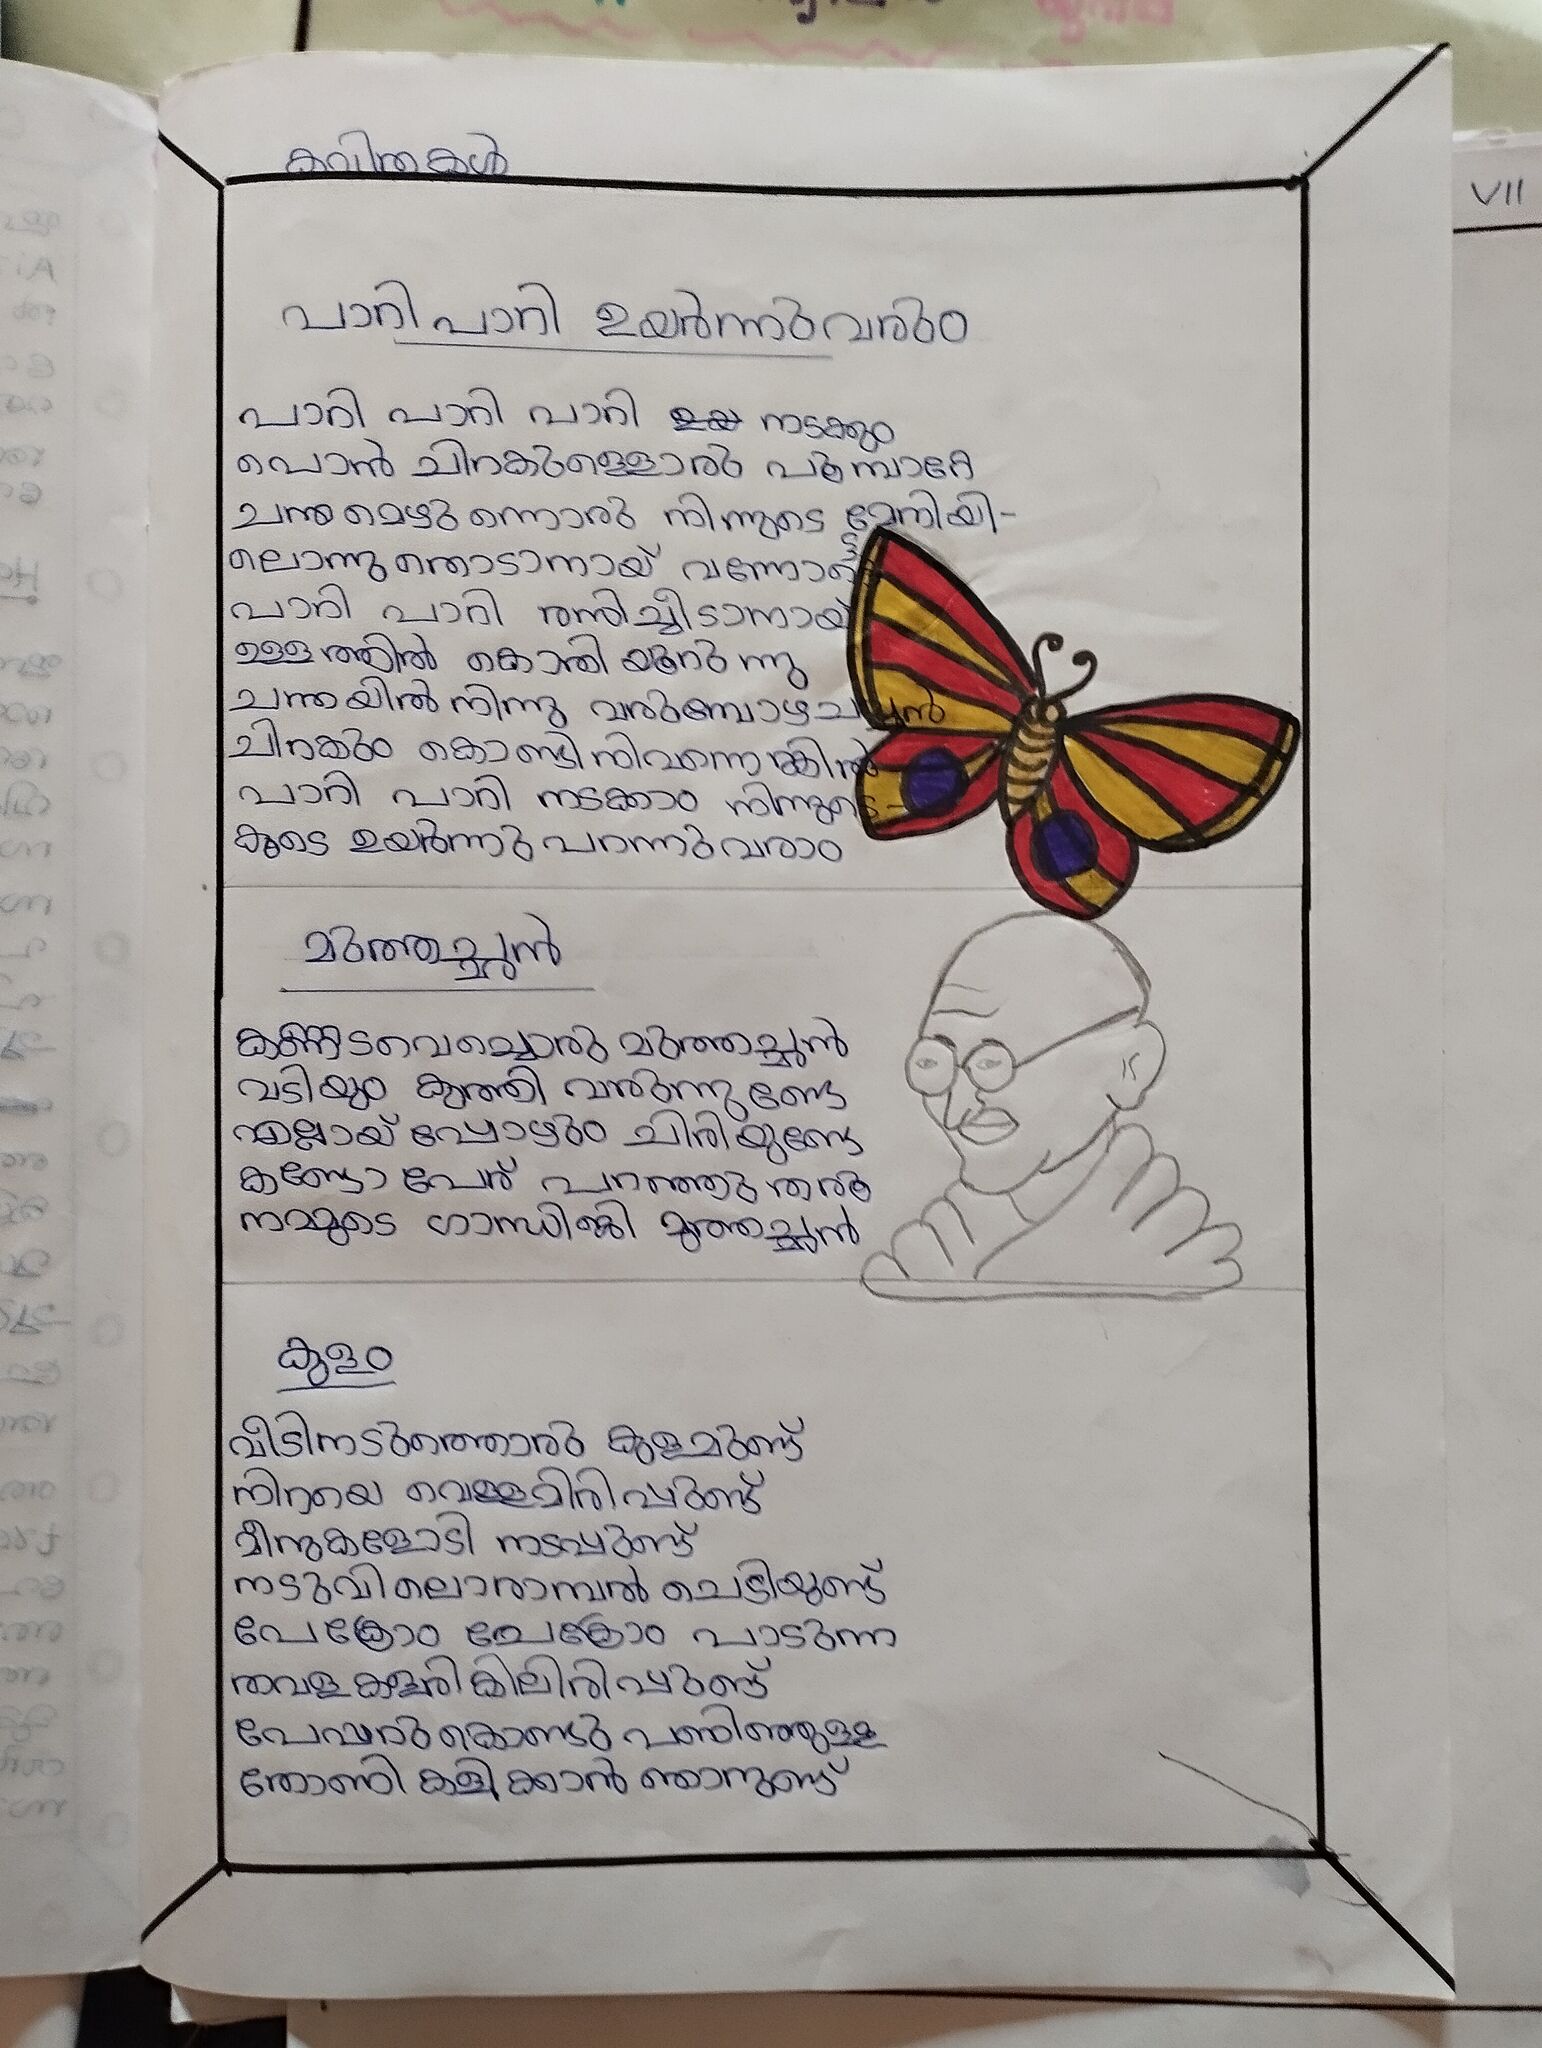 കവിതകൾ
VII
പാറി പാറി ഉയർന്നുവരും
പാറി പാറി പാറി നടക്കും
പൊൻ ചിറകുള്ളൊരു പൂമ്പാറ്റേ
ചന്തമെഴുന്നൊരു നിന്നുടെ മേനിയി-
ലൊന്നു തൊടാനായ് വന്നോട്ടെ
പാറി പാറി രസിച്ചീടാനായ്
ഉള്ളത്തിൽ കൊതിയൂറുന്നു
ചന്തയിൽ നിന്നു വരുമ്പോഴച്ചൻ
ചിറകും കൊണ്ടിനിവന്നെങ്കിൽ
പാറി പാറി നടക്കാം നിന്നുടെ-
കൂടെ ഉയർന്നു പറന്നു വരാം
മുത്തച്ഛൻ
കണ്ണടവെച്ചൊരു മുത്തച്ഛൻ
വടിയും കുത്തി വരുന്നുണ്ടേ
എല്ലായ്പ്പോഴും ചിരിയുണ്ടേ
കണ്ടോ പേര് പറഞ്ഞു തരൂ
നമ്മുടെ ഗാന്ധിജി മുത്തച്ഛൻ
കുളം
വീടിനടുത്തൊരു കുളമുണ്ട്
നിറയെ വെള്ളമിരിപ്പുണ്ട്
മീനുകളോടി നടപ്പുണ്ട്
നടുവിലൊരാമ്പൽ ചെടിയുണ്ട്
പേക്രോം പേക്രോം പാടുന്ന
തവളകളരികിലിരിപ്പുണ്ട്
പേപ്പറുകൊണ്ടു പണിഞ്ഞുള്ള
തോണി കളിക്കാൻ ഞാനുണ്ട്